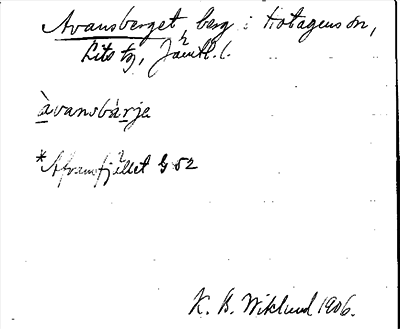 Avansberget, berg i Hotagens sn,
Lits tg, Jämtl. l.
àvansbàrja
*Afvansfjället G 52
K. B. Wiklund 1906.